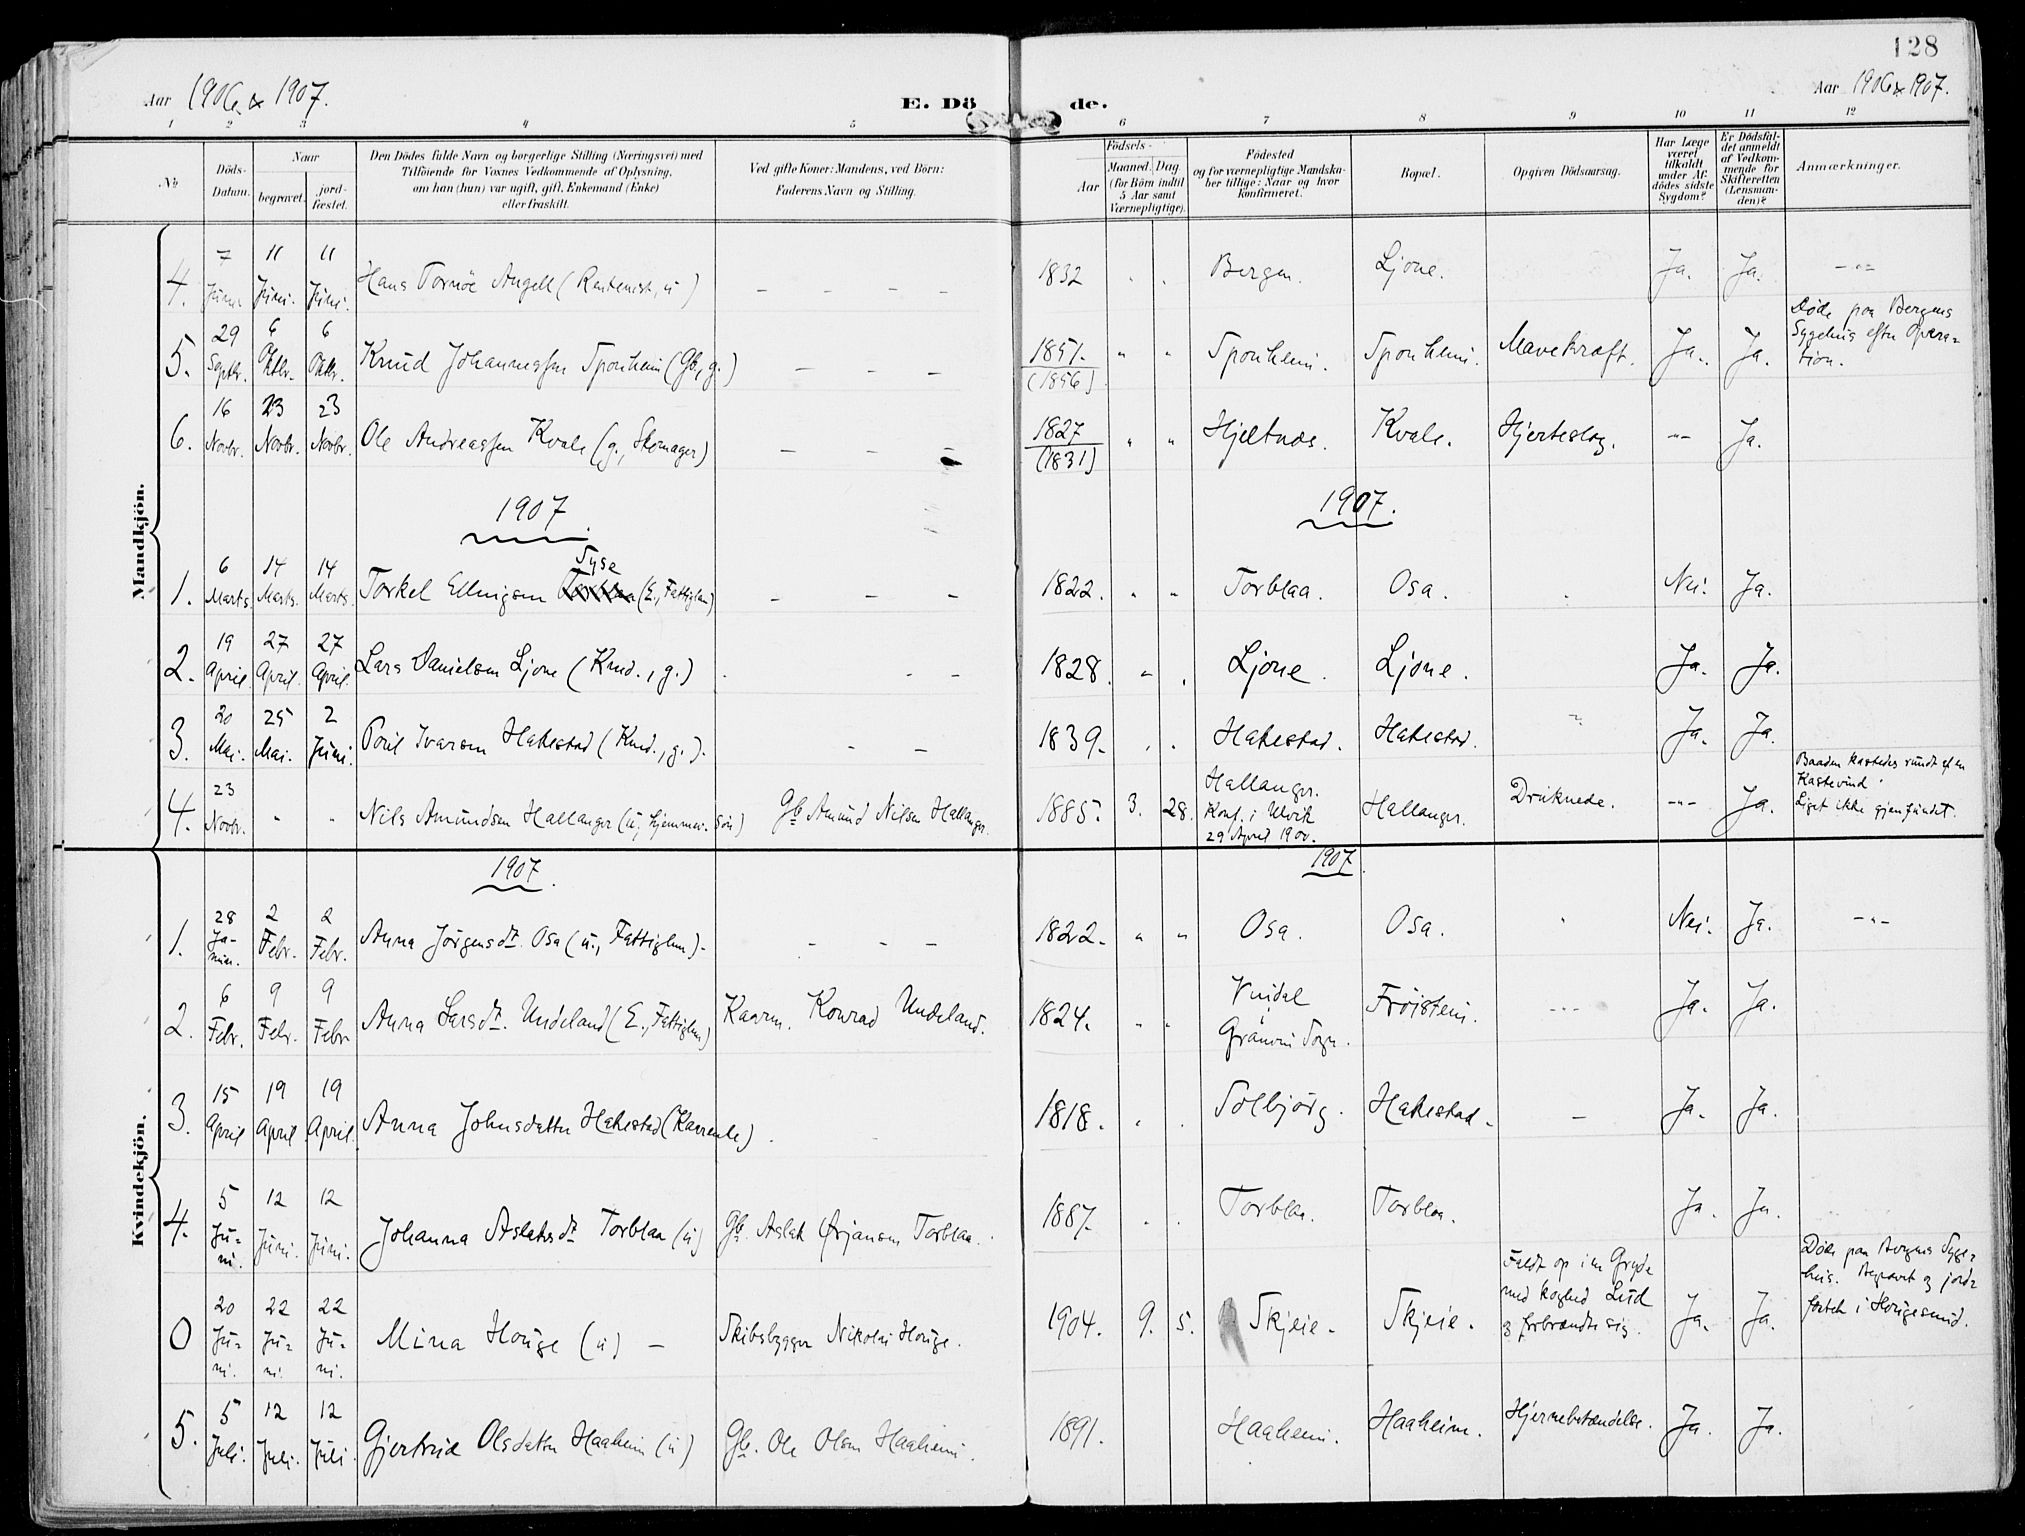 128
Aar 1906 & 1907.
E. Dö de.
Aar 1906 & 1907.
1 2 3 4 5 6 7 8 9 10 11 12
No.
Döds-Datum.
Naar
begravet.
jord-fæstet.
Den Dödes fulde Navn og borgerlige Stilling (Næringsvei) med
Tilföiende for Voxnes Vedkommende af Oplysning,
om han (hun) var ugift, gift, Enkemand (Enke)
eller fraskilt.
Ved gifte Koner: Mandens, ved Börn:
Faderens Navn og Stilling.
Födsels-
Aar
Maaned. Dag
(for Börn indtil
5 Aar samt
Værnepligtige).
Födested
og for værnepligtige Mandska-
ber tillige: Naar og hvor
konfirmeret.
Bopæl.
Opgiven Dödsaarsag.
Har Læge
været
tilkaldt
under Af-
dödes sidste
Sygdom?
Er Dödsfal-
det anmeldt
af Vedkom-
mende for
Skifteretten
(Lensman-
den)?
Anmærkninger.
Mandkjön.
4. 7 Juni. 11 Juni. 11 Juni. Hans Tornöe Angell (Rentenist, u) - - - - 1832 Bergen. Ljone. Ja. Ja. -"-
5. 29 Septbr. 6 Oktbr. 6 Oktbr. Knud Johannessen Sponheim (Gb., g.) - - - 1851. (1856) " " Sponheim. Sponheim. Mavekræft. Ja. Ja. Døde paa Bergens
Sygehus efter Opera-
tion.
6. 16 Novbr. 23 Novbr. 23 Novbr. Ole Andreassen Kvale (g., Skomager) - - - 1827 (1831) " " Hjeltnæs. Kvale. Hjerteslag. -"- Ja.
1907. 1907.
1. 6 Marts. 14 Marts. 14 Marts. Torkel Ellingsen Tyse (E., Fattiglem) - - - 1822. " " Torblaa. Osa. Nei. Ja.
2. 19 April. 27 April. 27 April. Lars Danielsen Ljone (Kmd., g.) - - 1828. " Ljone. Ljone. Ja. Ja.
3. 20 Mai. 25 Mai. 2 Juni. Poul Ivarsen Hakestad (Kmd., g.). - - 1839. Hakestad. Hakestad. Ja. Ja.
4. 23 Novbr. " " Nils Amundsen Hallanger (u, hjemmev. Søn) Gb Amund Nilsen Hallanger. 1885. 3. 28. Hallanger.
Konf. i Ulvik
29 April 1900. Hallanger. Druknede. -"- Ja. Baaden kastedes rundt af en
Kastevind.
Liget ikke gjenfundet.
Kvindekjön.
1907. 1907.
1. 28 Ja-nuar. 2 Febr. 2 Febr. Anna Jørgensdt. Osa (u., Fattiglem). - - - 1822. " " Osa. Osa. Nei. Ja. -"-
2. 6 Febr. 9 Febr. 9 Febr. Anna Larsdt. Undeland (E., Fattiglem) Kaarm. Konrad Undeland. 1824. " " Granvin Sogn. Frøistein. --- Ja. Ja.
3. 15 April 19 April 19 April. Anna Johnsdatter Hakestad (Kaarenke). 1818. Solbjørg. Hakestad. - Ja. Ja.
4. 5 Ju-ni. 12 Juni. 12 Juni. Johanna Aslaksdt Torblaa (u) Gb. Aslak Ørjansen Torblaa. 1887. Torblaa. Torblaa. Ja. Ja.
0 20 Ju-ni. 22 Ju-ni. 22 Ju-ni. Mina Houge (u) - Skibsbygger Nikolai Houge. 1904. 9. 5. Skjeie. Skjeie. Faldt op i en Gryde
med koghed Lud
og forbrændte sig. Ja. Ja. Døde paa Bergens Syge-
hus. Begravet og jord-
fæstet i Hougesund.
5. 5 Juli. 12 Juli. 12 Juli. Gjertrud Olsdatter Haaheim (u) Gb. Ole Olsen Haaheim. 1891. Haaheim. Haaheim. Hjernebetændelse. Ja. Ja.